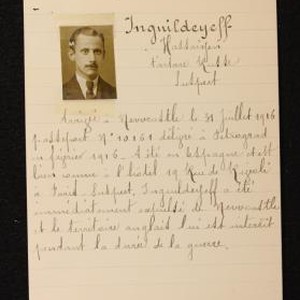 Inguildeyeff
Suspect
Arrivé à Newcastle le 31 juillet 1916
passeport N° 10161 délivré à Petrograd
en février 1916. A été en Espagne et est
bien connu à l'hôtel 19 Rue de Rivoli
à Paris. Suspect. Inguildeyeff a été
immédiatement expulsé de Newcastle
et le territoire anglais lui est interdit
pendant la durée de la guerre.